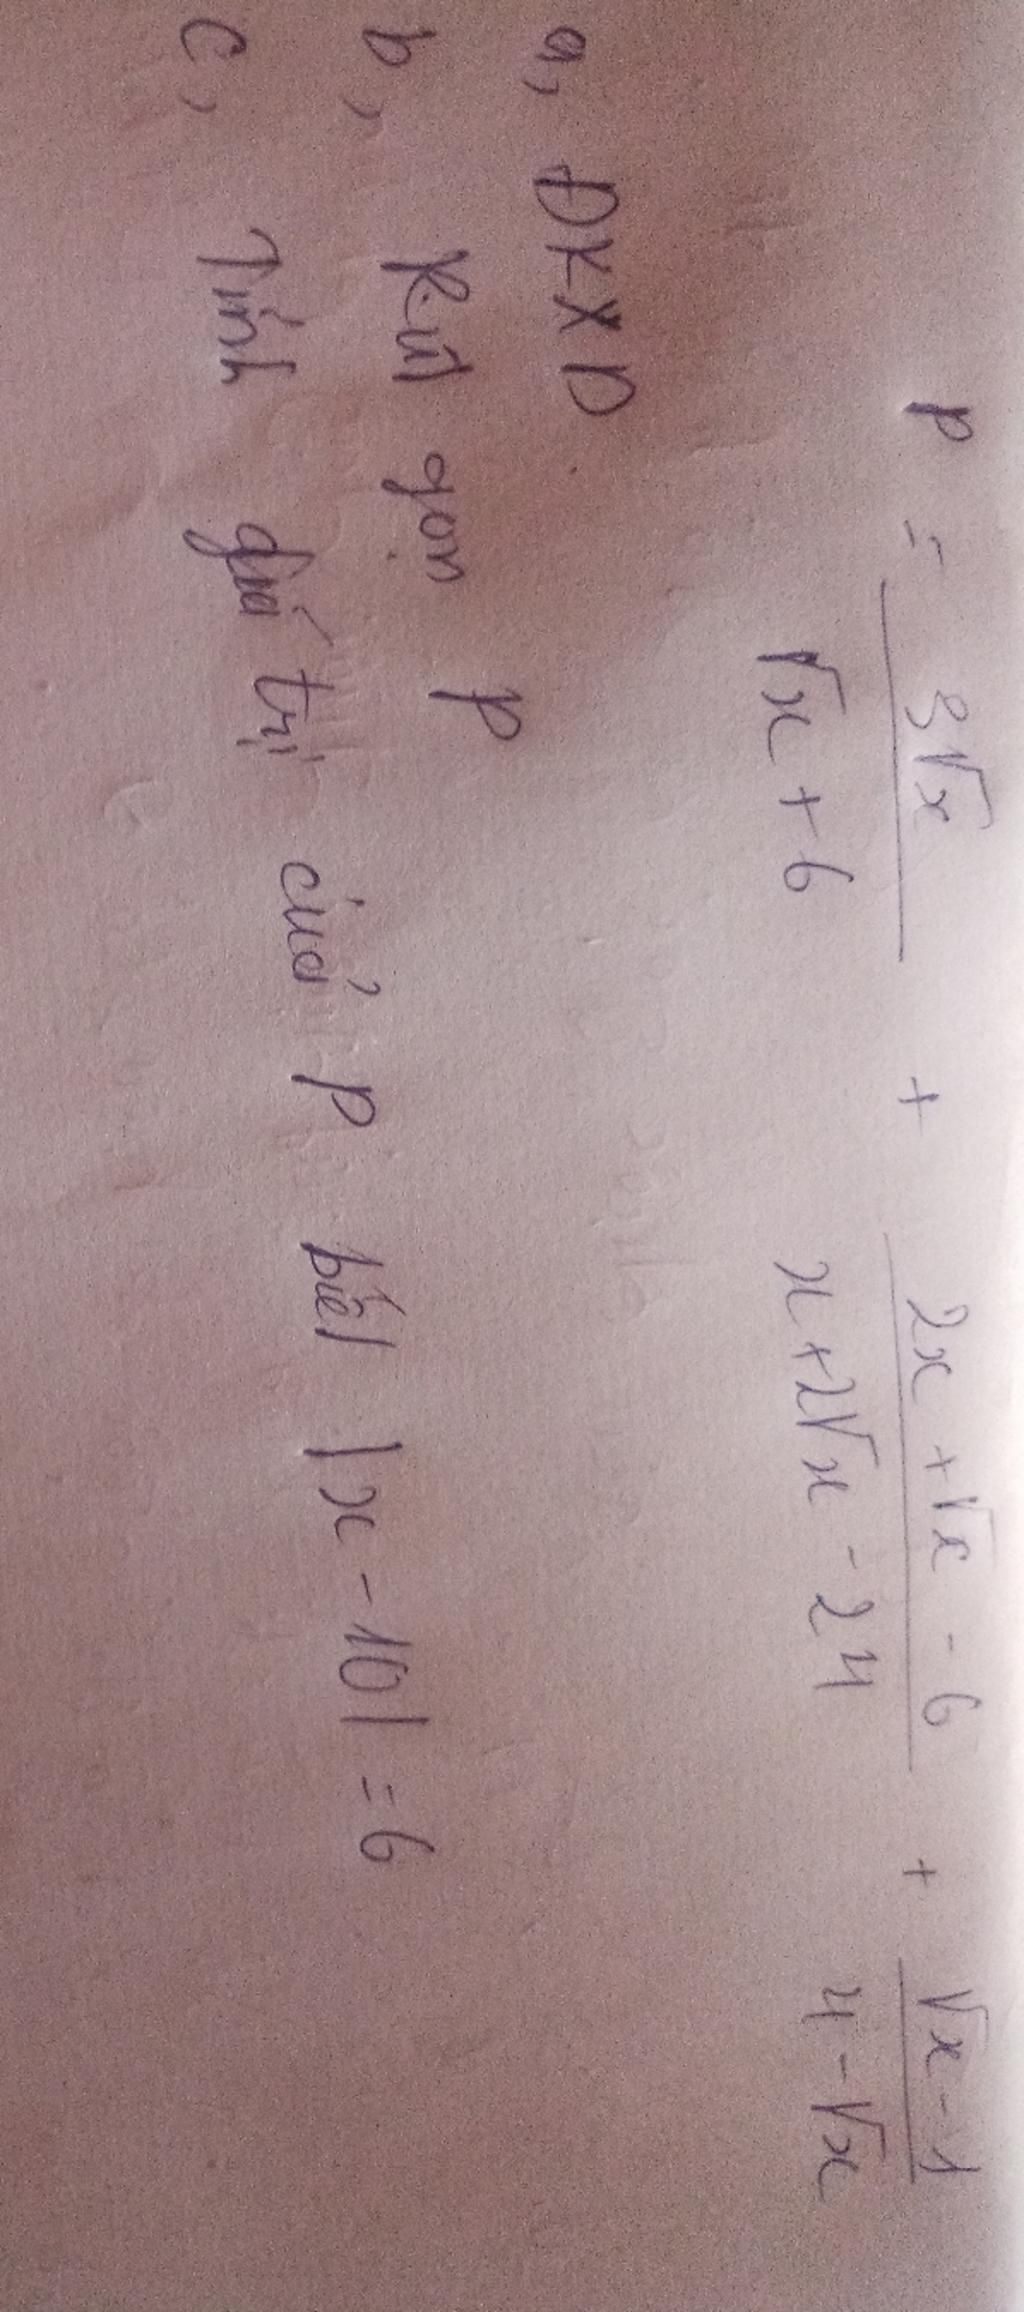 P = 3√x / √x + 6 + 2x + √x - 6 / x + 2√x - 24 + √x - 1 / 4 - √x
a, ĐKXD
b, Rút gọn P
c, Tính giá trị của P biết |x - 10| = 6